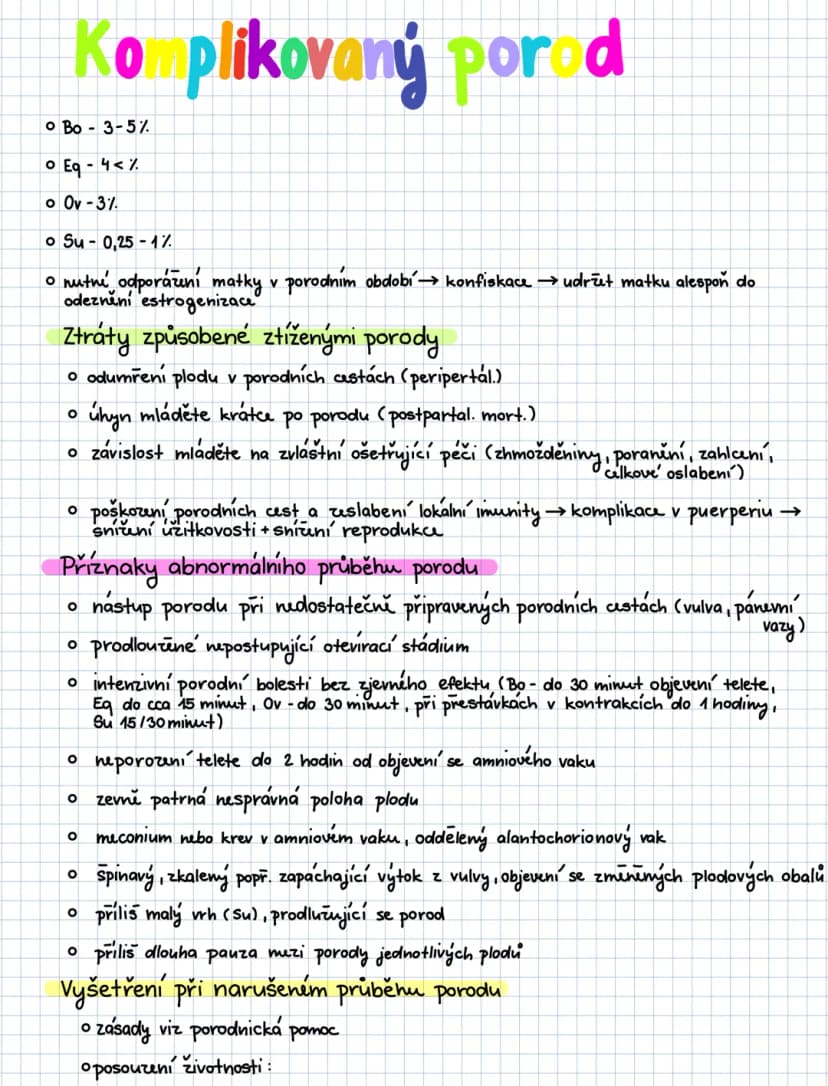 Komplikovaný porod
o Bo - 3-5%
o Eq - 4<%
o Ov - 3%
o Su - 0,25 - 1%
o nutné odporážení matky v porodním období → konfiskace → udržet matku alespoň do
odeznění estrogenizace
Ztráty způsobené ztíženými porody
o odumření plodu v porodních cestách (peripertál.)
o úhyn mláděte krátce po porodu (postpartal. mort.)
o závislost mláděte na zvláštní ošetřující péči (zhmožděniny, poranění, zahlcení,
celkové oslabení)
o poškození porodních cest a zeslabení lokální imunity → komplikace v puerperiu →
snížení užitkovosti + snížení reprodukce
Příznaky abnormálního průběhu porodu
o nástup porodu při nedostatečně připravených porodních cestách (vulva, pánevní
vazy)
o prodloužené nepostupující otevírací stádium
o intenzivní porodní bolesti bez zjevného efektu (Bo - do 30 minut objevení telete,
Eq do cca 15 minut, Ov - do 30 minut, při přestávkách v kontrakcích do 1 hodiny,
Su 15/30 minut)
o neporození telete do 2 hodin od objevení se amniového vaku
o zevně patrná nesprávná poloha plodu
o meconium nebo krev v amniovém vaku, oddělený alantochorionový vak
o špinavý, zkalený popř. zapáchající výtok z vulvy, objevení se zmíněných plodových obalů
o příliš malý vrh (Su), prodlužující se porod
o příliš dlouha pauza mezi porody jednotlivých plodů
Vyšetření při narušeném průběhu porodu
o zásady viz porodnická pomoc
o posouzení životnosti: